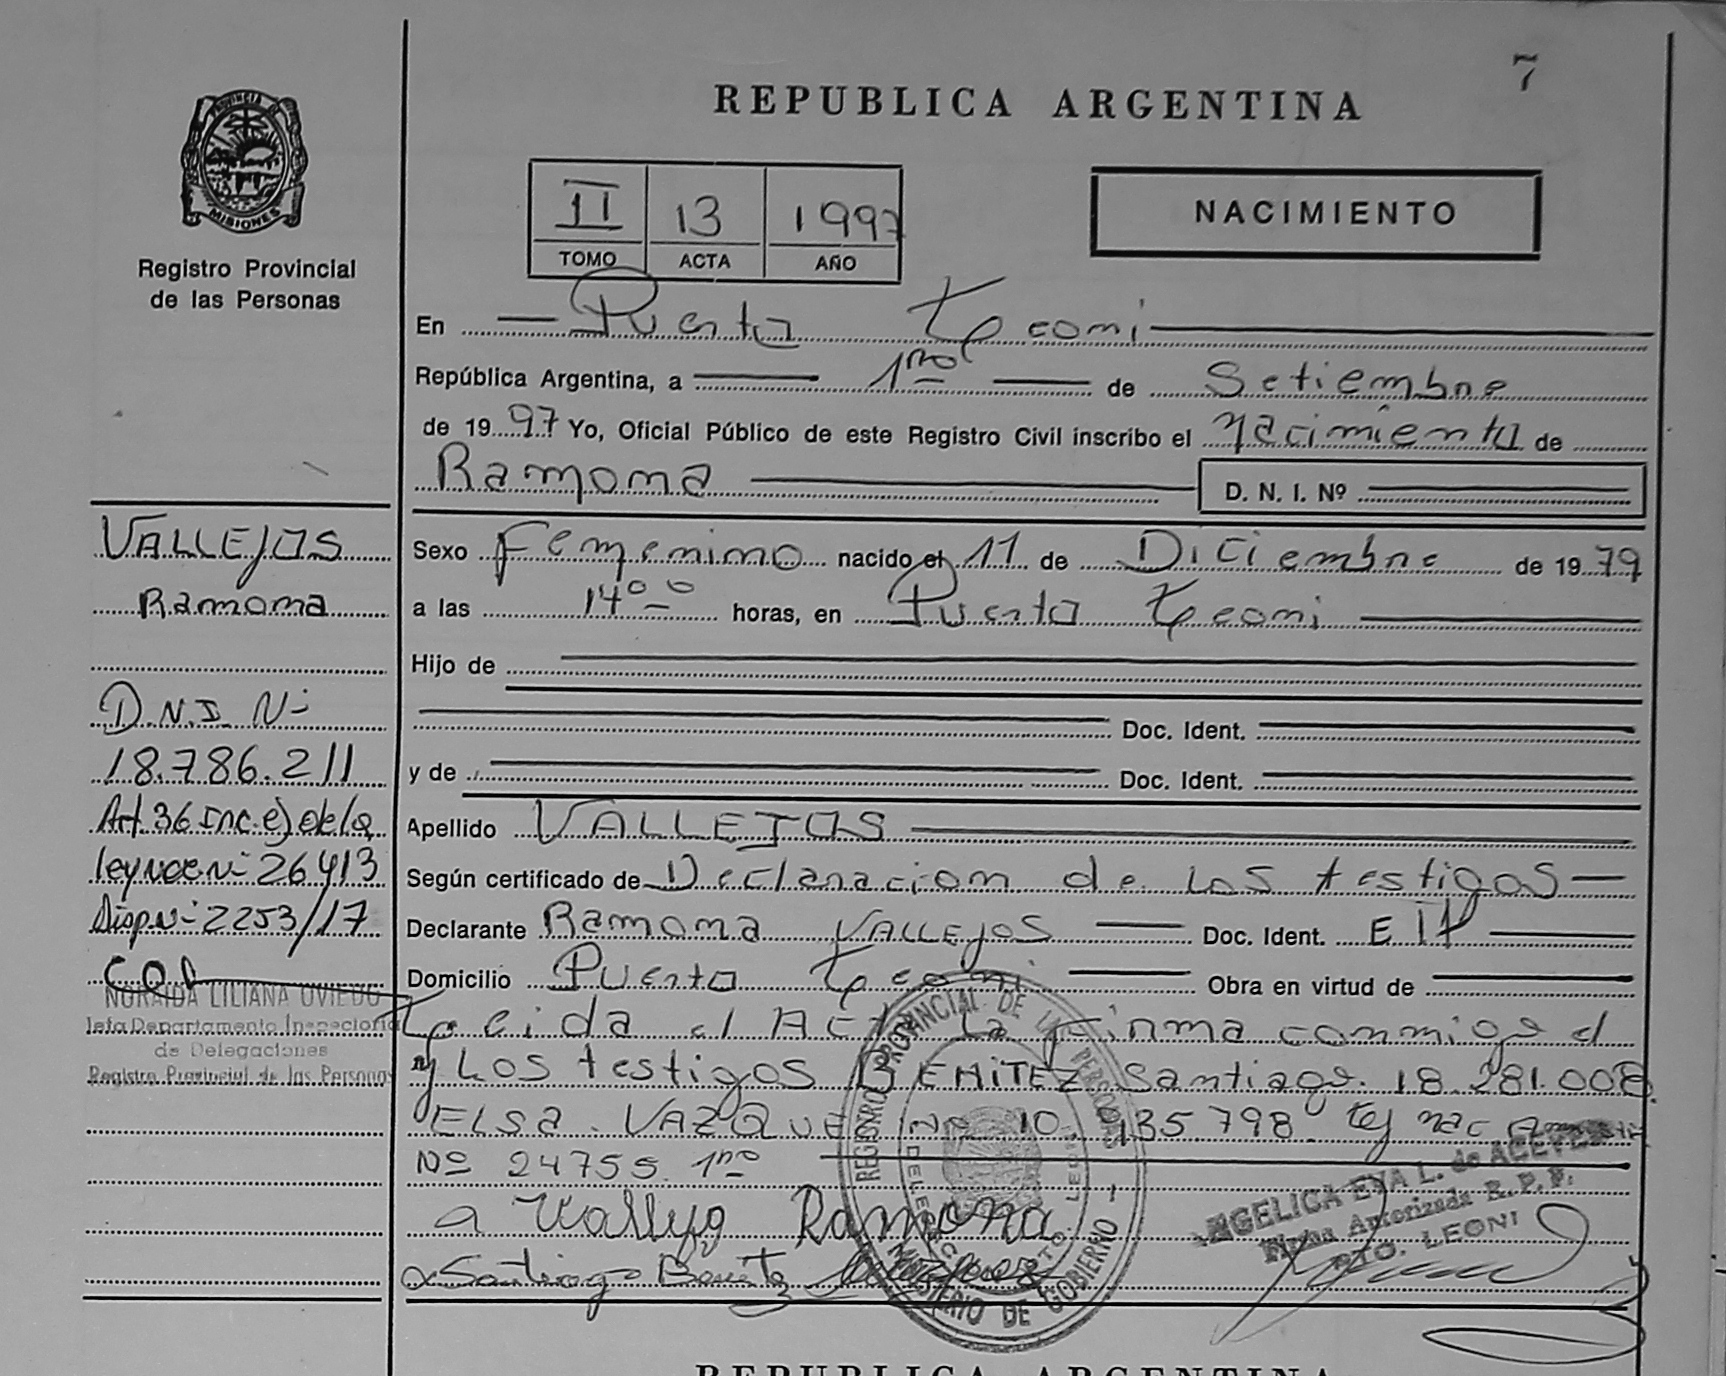 7
REPUBLICA ARGENTINA
PROVINCIA
MISIONES
Registro Provincial
de las Personas
II 13 1997
TOMO ACTA AÑO
NACIMIENTO
En Puerto Leoni
República Argentina, a 1ro de Setiembre
de 1997 Yo, Oficial Público de este Registro Civil inscribo el nacimiento de
Ramona D. N. I. Nº
Sexo Femenino nacido el 11 de Diciembre de 1979
a las 14 00 horas, en Puerto Leoni
Hijo de
Doc. Ident.
y de Doc. Ident.
Apellido VALLEJOS
Según certificado de Declaracion de Los testigos
Declarante Ramona VALLEJOS Doc. Ident. E 17
Domicilio Puerto Leoni Obra en virtud de
Leida el Acta La Firma conmigo el
y Los testigos BENITEZ Santiago. 18.281.008
ELSA. VAZQUE Nº 10.935.798 Ley nac
Nº 24755. 1ro
a Vallejo Ramona
Santiago Benite
VALLEJOS
Ramona
D.N.I Nº
18.786.211
Art. 36 Inc. e) de la
ley nac Nº 26413
Disp. Nº 2253/17
NORAIDA LILIANA OVIEDO
Jefa Departamento Inspectoria
de Delegaciones
Registro Provincial de las Personas
REGISTRO PROVINCIAL DE LAS PERSONAS
MINISTERIO DE GOBIERNO
ANGELICA EVA L. de ACEVE
Firma Autorizada R. P. P.
PTO. LEONI
REPUBLICA ARGENTINA